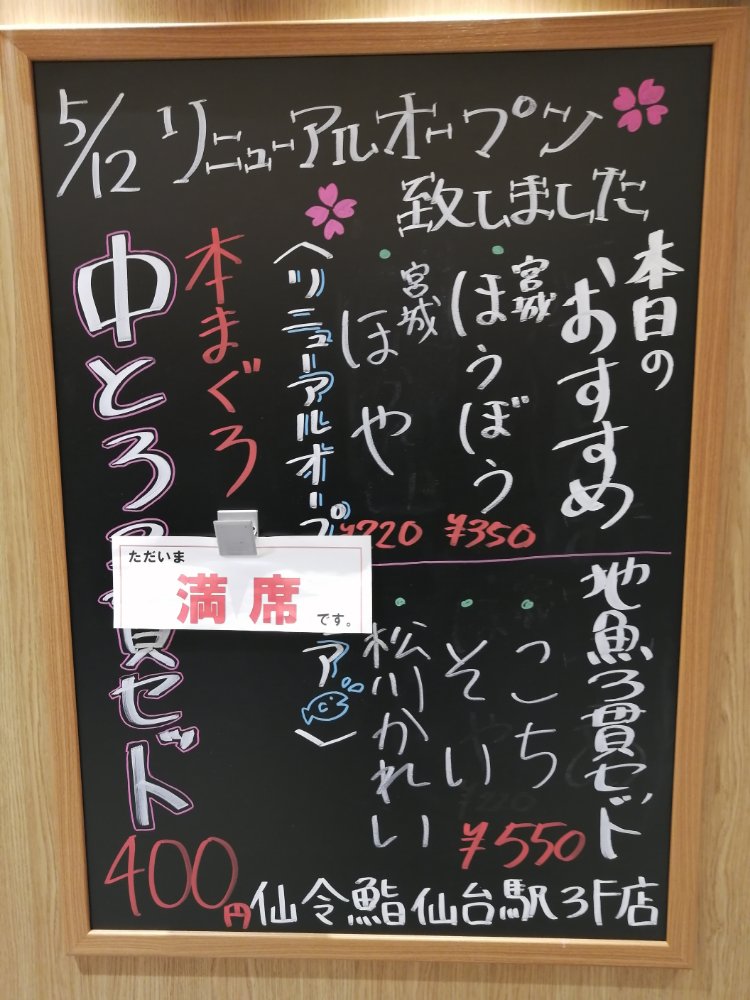 5/12 リニューアルオープン
致しました
本日の
おすすめ
・宮城
ほうぼう
¥350
・宮城
ほや
¥220
地魚3貫セット
・こち
・そい
・松川かれい
¥550
〈リニューアルオープ
ア〉
本まぐろ
中とろ
貫セット
400円
ただいま
満席
です。
仙令鮨仙台駅3F店